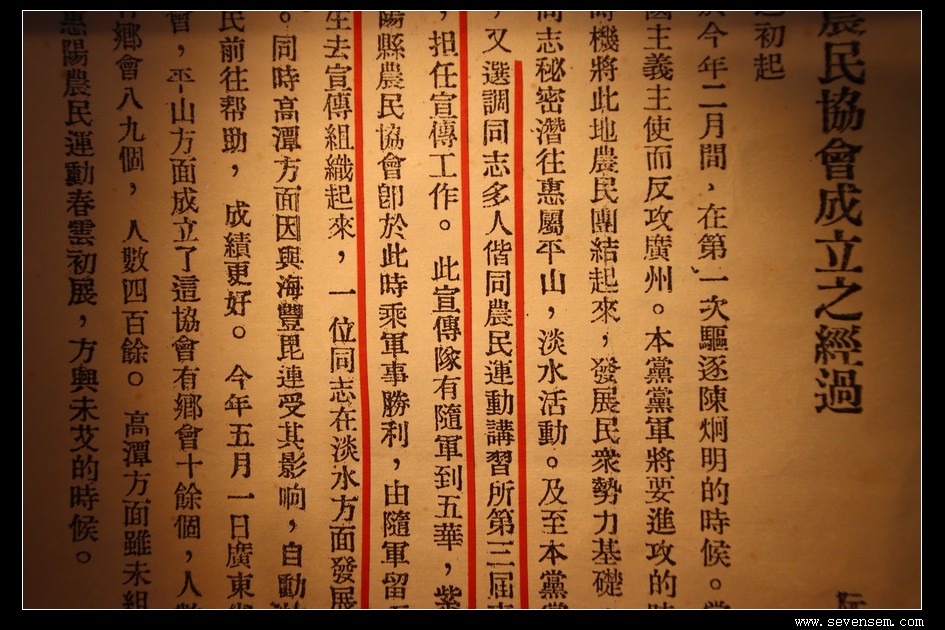 農民協會成立之經過
初起
今年二月間，在第一次驅逐陳炯明的時候。
主義主使而反攻廣州。本黨黨軍將要進攻的
機將此地農民團結起來，發展民衆勢力基礎，
志秘密潛往惠屬平山，淡水活動。及至本黨
，又選調同志多人偕同農民運動講習所第三屆
，担任宣傳工作。此宣傳隊有隨軍到五華，紫
陽縣農民協會卽於此時乘軍事勝利，由隨軍留
生去宣傳組織起來，一位同志在淡水方面發展
。同時高潭方面因與海豐毘連受其影响，自動
民前往帮助，成績更好。今年五月一日廣東
會，平山方面成立了這協會有鄉會十餘個，人數
鄉會八九個，人數四百餘。高潭方面雖未組
惠陽農民運動春雲初展，方興未艾的時候。
www.sevensem.com